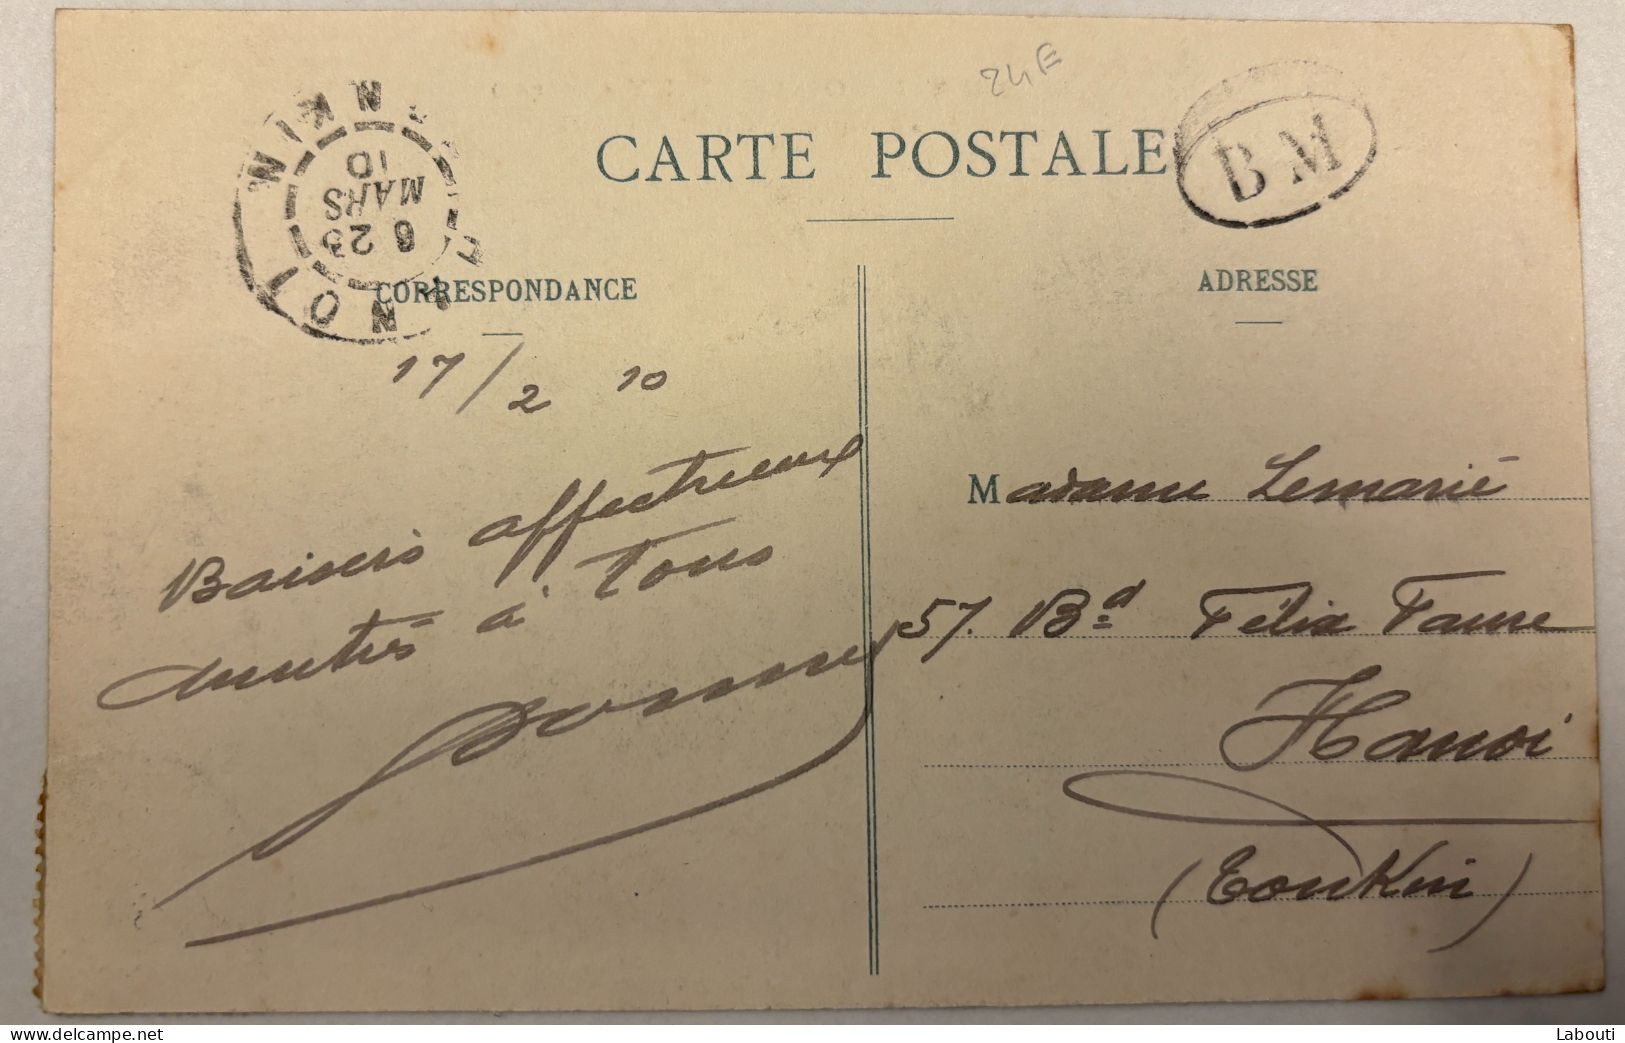 24E
CARTE POSTALE
B M
HANOI
TONKIN
6 23
MARS
10
CORRESPONDANCE
ADRESSE
17/2 10
Baisers affectueux
à Tous
Madame Lemarié
57. Bd Félix Faure
Hanoi
(Tonkin)
www.delcampe.net
Labouti